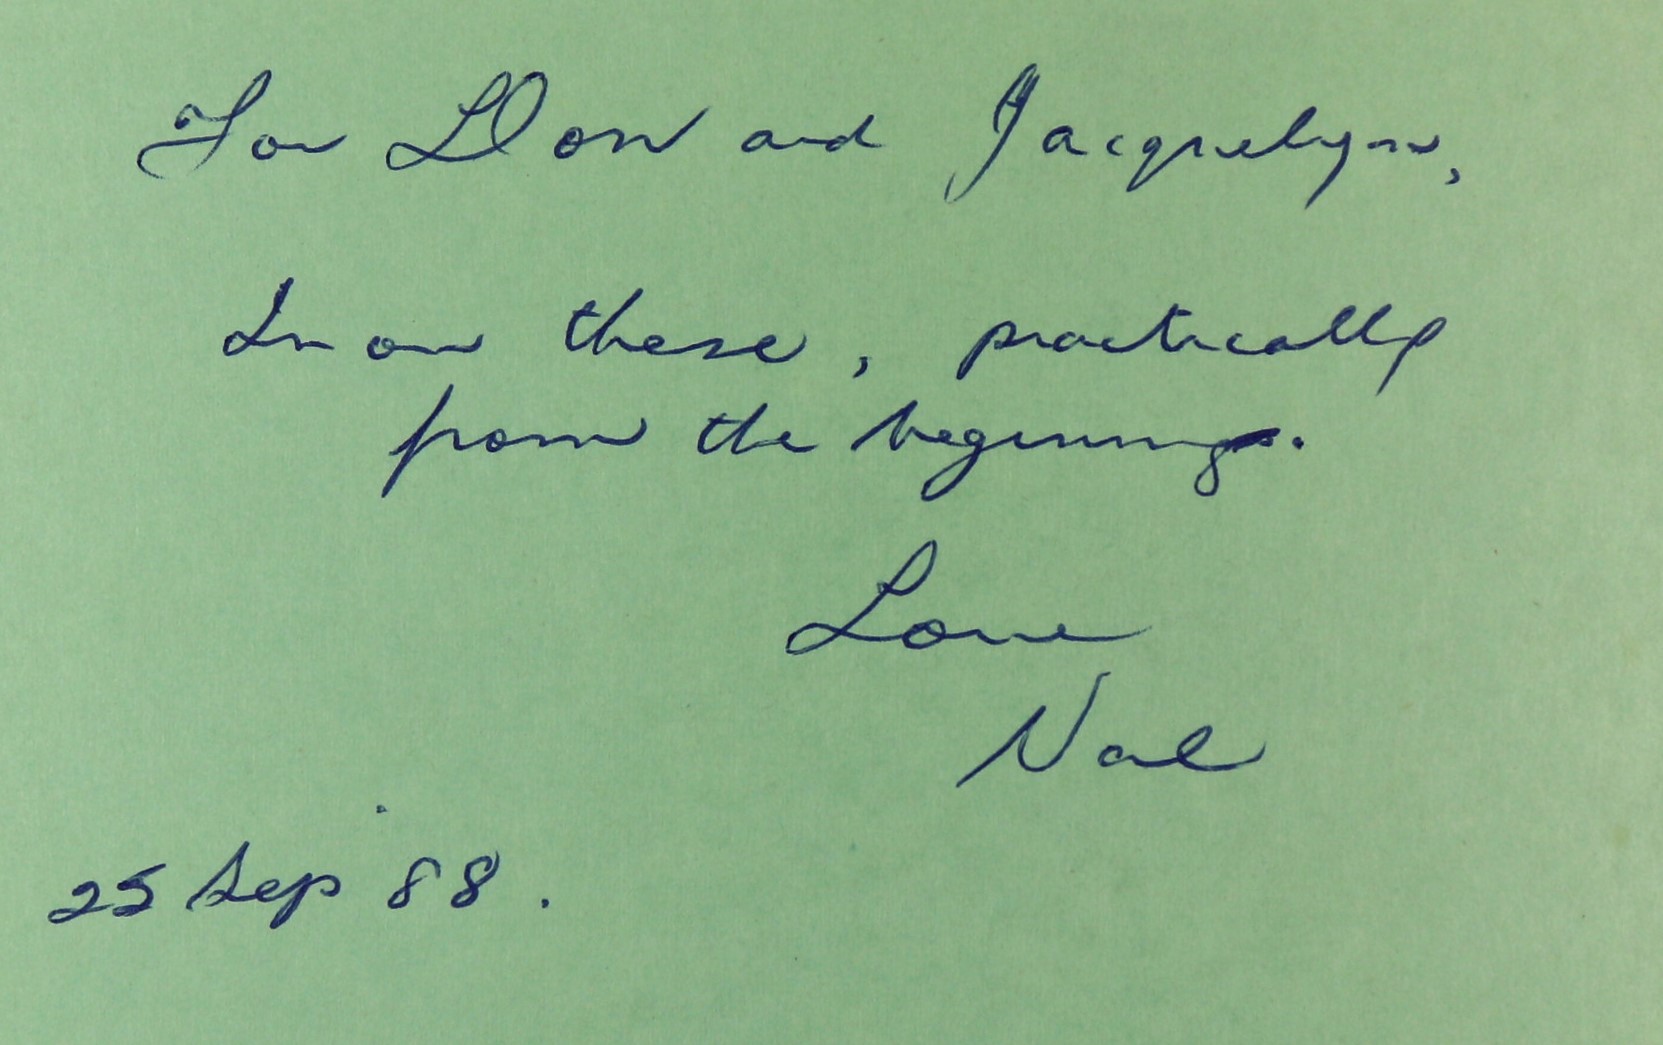 For Don and Jacquelyn,
In on these, practically
from the beginning.
Love
Nal
25 Sep 88.